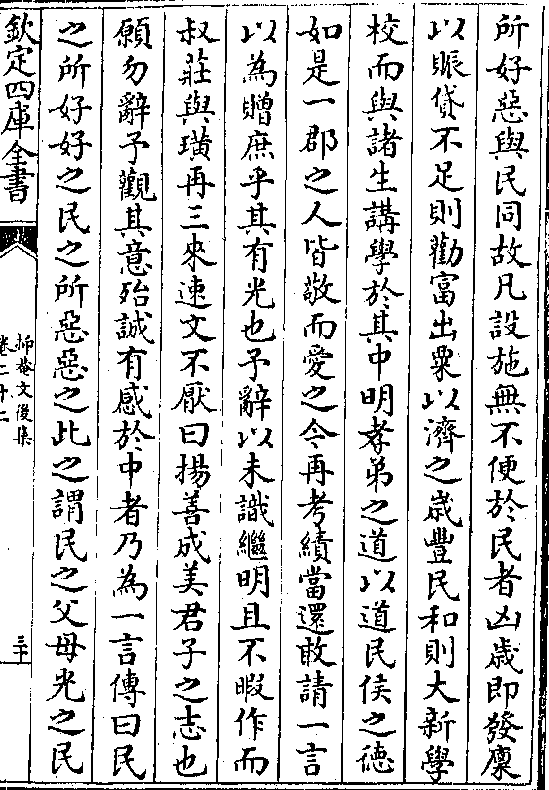 所好惡與民同故凡設施無不便於民者凶歳即發廪
以賑貸不足則勸富出粟以濟之歳豐民和則大新學
校而與諸生講學於其中明孝弟之道以道民侯之徳
如是一郡之人皆敬而愛之今再考績當還敢請一言
以為贈庶乎其有光也予辭以未識繼明且不暇作而
叔莊與璜再三來速文不厭曰揚善成美君子之志也
願勿辭予觀其意殆誠有感於中者乃為一言傳曰民
之所好好之民之所惡惡之此之謂民之父母光之民
欽定四庫全書
抑菴文後集
卷二十二
三十